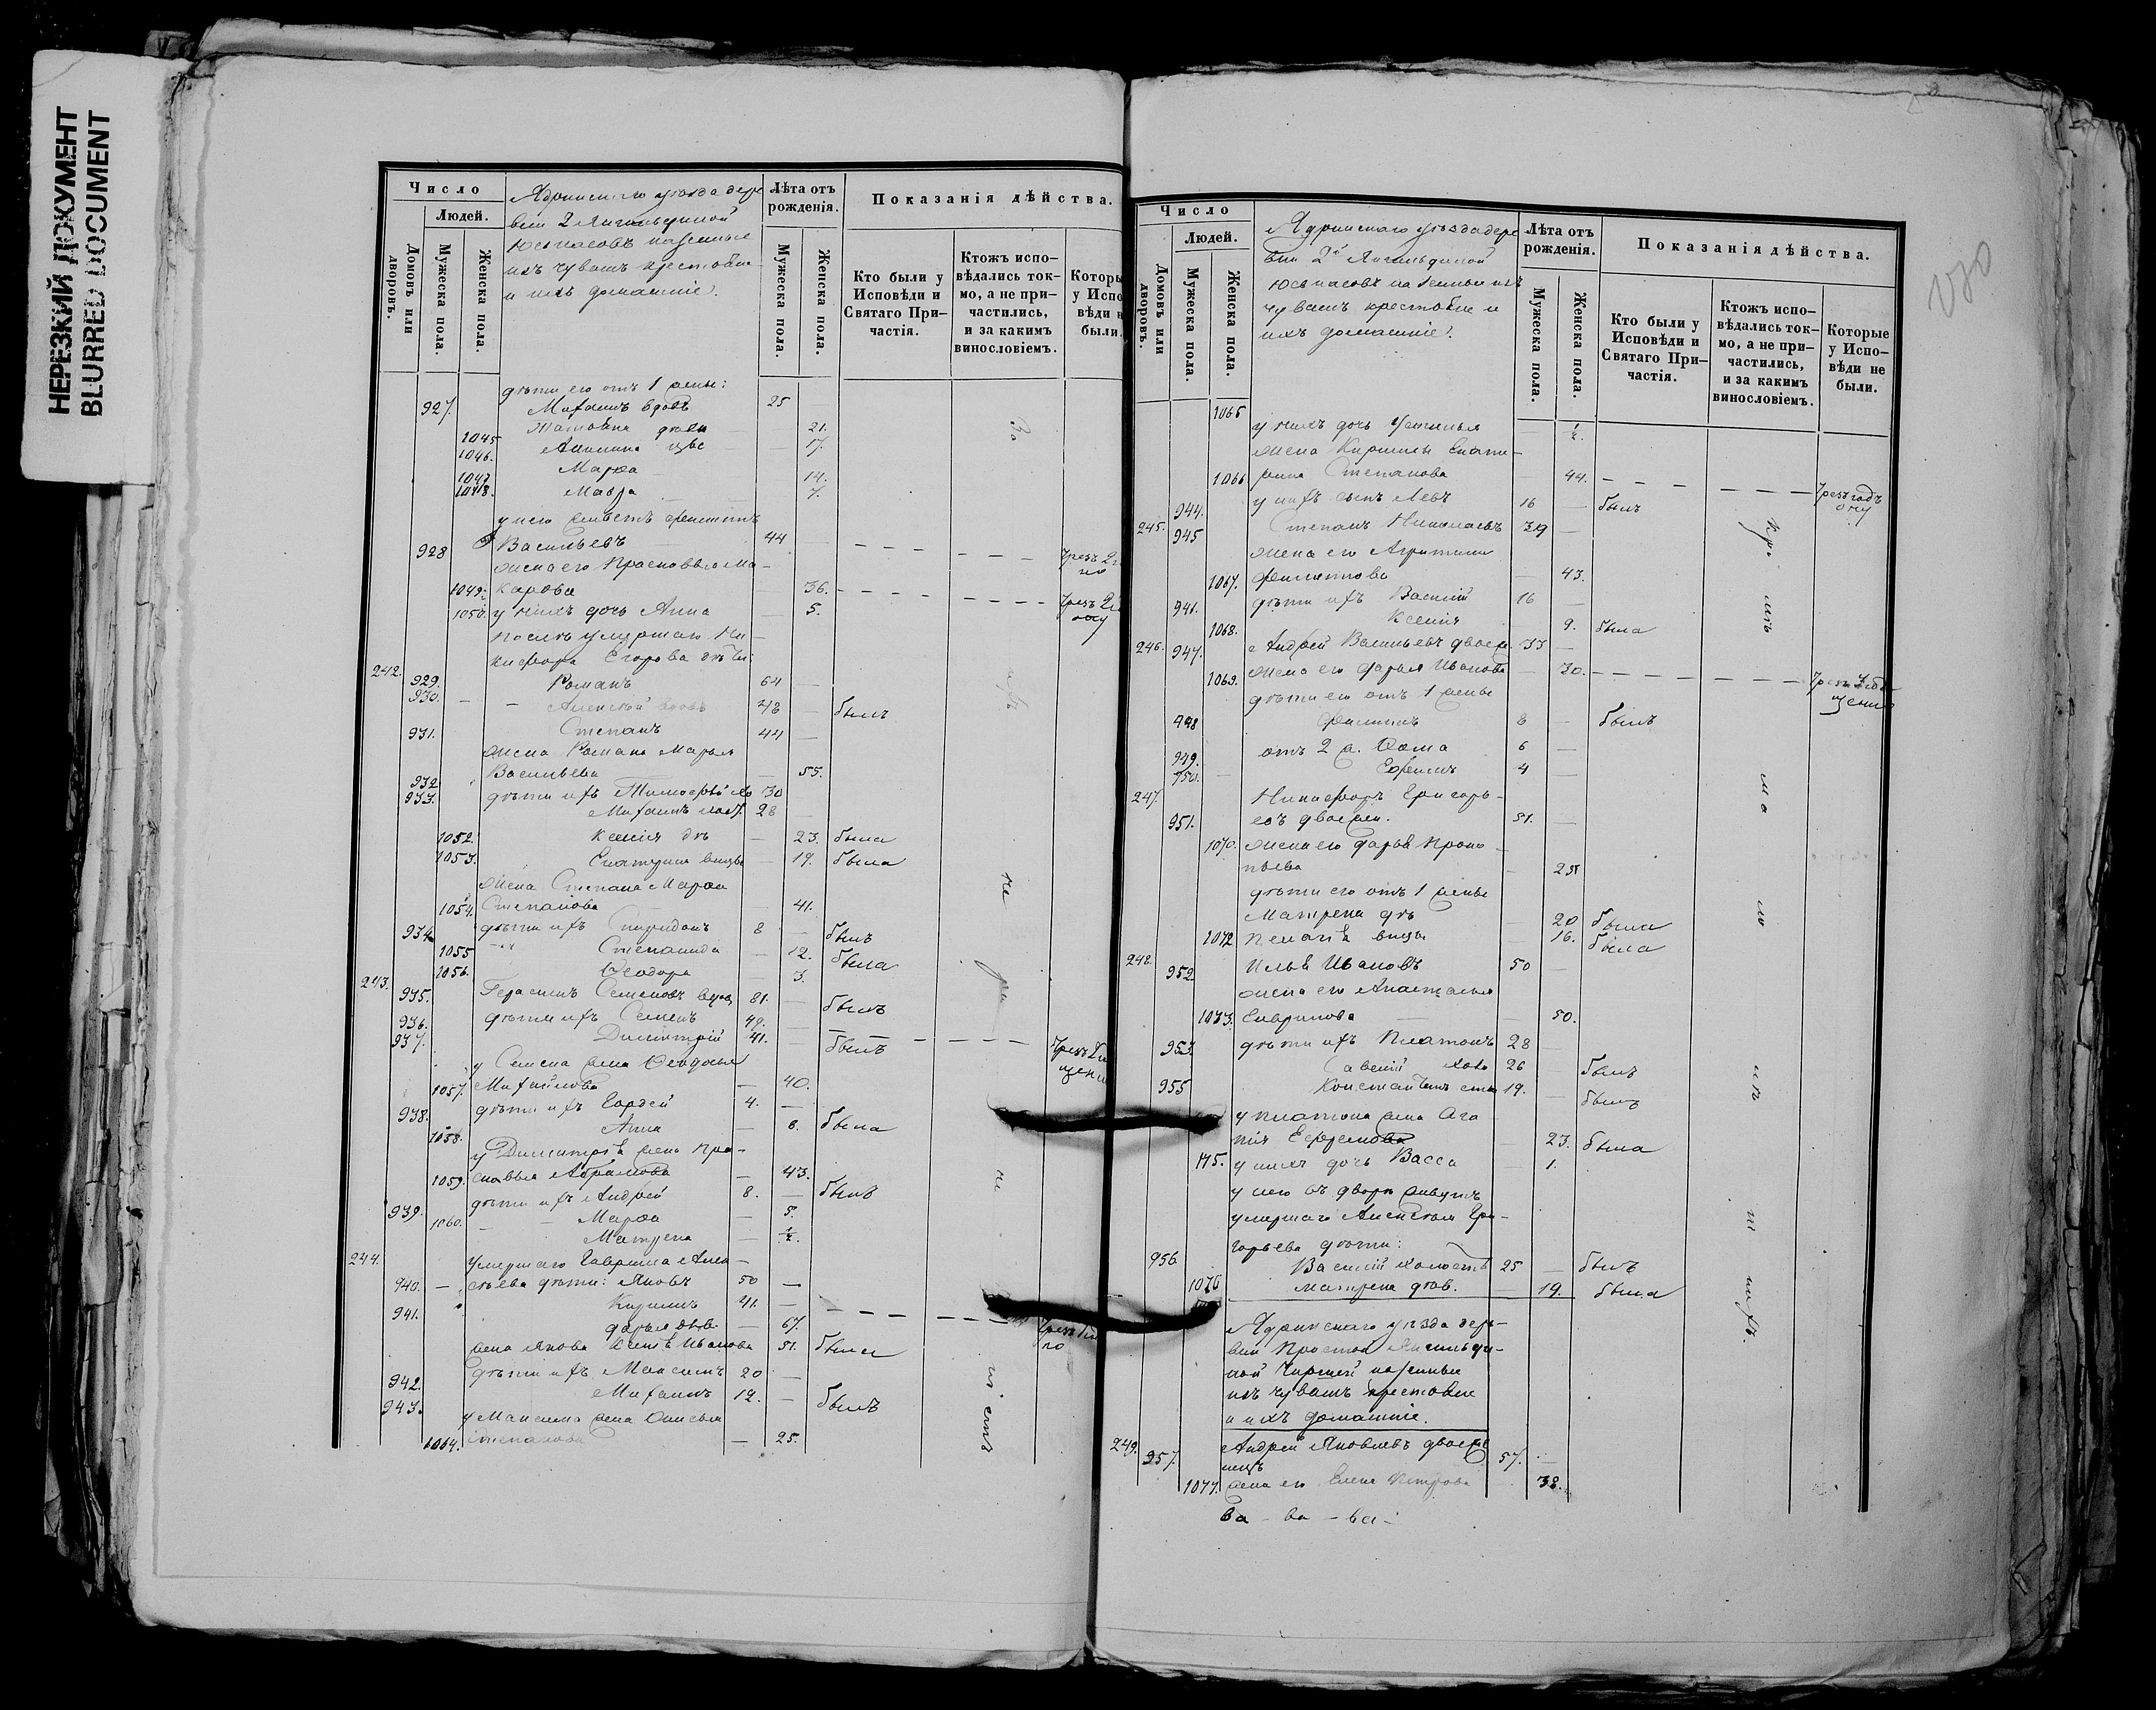 НЕРЕЗКИЙ ДОКУМЕНТ
BLURRED DOCUMENT
Число
Людей.
Домовъ или дворовъ.
Мужеска пола.
Женска пола.
Ядринскаго уѣзда дере
вни 2 Янгильдиной
казенные
изъ чувашъ крестьяне
и ихъ домашніе.
Лѣта отъ рожденія.
Мужеска пола.
Женска пола.
Показанія дѣйства.
Кто были у Исповѣди и Святаго Причастія.
Ктожъ исповѣдались токмо, а не причастились, и за какимъ винословіемъ.
Которы
у Испо
вѣди н
были.
дѣти его отъ 1 жены:
927. Михаилъ вдовъ 25 —
1045 21.
1046. 17.
1047 Марѳа 14.
1048. Мавра 7.
у него живетъ Филиппъ
928 Васильевъ 44 —
жена его Прасковья Ма-
1049. карова 36.
1050. у нихъ дочь Анна — 5.
послѣ умершаго Ни-
кифора Егорова дѣти:
242. 929. Романъ 64 —
930. Алексѣй вдовъ 48 — былъ
931. Степанъ 44 —
жена Романа Марья
Васильева — 55.
932 дѣти ихъ Тимофей 30
933. Михаилъ 28 —
1052. Ксенія дѣ — 23. была
1053. Екатерина — 19. была
жена Степана Марѳа
1054. Степанова — 41.
934 дѣти ихъ Спиридонъ 8 — былъ
1055 Степанида — 12. была
1056. Ѳеодора — 3.
243. 935. Герасимъ Семеновъ вдовъ 81. — былъ
936. дѣти ихъ Семенъ 49. —
937. Димитрій 41. — былъ
у Семена жена Ѳеодосья
1057. Михайлова — 40.
938. дѣти ихъ Гордей 4. —
1058. Анна — 6. была
у Димитрія жена Пра-
1059. сковья Абрамова — 43.
939. дѣти ихъ Андрей 8. — былъ
1060. Марѳа — 5.
Матрена — ½.
244. умершаго Гаврила Алек-
940. — сѣева дѣти: Яковъ 50 —
941. Кирилъ 41. —
Дарья дѣв. — 67.
жена Якова Ксенія Иванова 51. была
942. дѣти ихъ Максимъ 20 —
943. Михаилъ 12. — былъ
у Максима жена Анисья
1064. Степанова — 25.
Число
Людей.
Домовъ или дворовъ.
Мужеска пола.
Женска пола.
Ядринскаго уѣзда дере
вни 2й Янгильдиной
казенные изъ
чувашъ крестьяне и
ихъ домашніе.
Лѣта отъ рожденія.
Мужеска пола.
Женска пола.
Показанія дѣйства.
Кто были у Исповѣди и Святаго Причастія.
Ктожъ исповѣдались токмо, а не причастились, и за какимъ винословіемъ.
Которые у Исповѣди не были.
1065 у нихъ дочь Устинья — ½.
жена Кирилы Екате-
1066 рина Степанова — 44.
944. у нихъ сынъ Левъ 16 — былъ
245. 945 Степанъ Николаевъ 39 —
жена его Агрипина
1067. Филиппова — 43.
946. дѣти ихъ Василій 16 —
1068. Ксенія 9. была
246. 947. Андрей Васильевъ двоеж 33 —
1069. жена его Дарья Иванова — 30.
дѣти его отъ 1 жены
948 Филиппъ 8 — былъ
949. отъ 2 ж. Ѳома 6 —
950. Ефремъ 4 —
247. Никифоръ Григорь-
951. евъ двоежен. 51. —
1070. жена его Дарья Проко-
пьева — 25
дѣти его отъ 1 жены
Матрена дѣ — 20 была
1072 Пелагѣя — 16. была
248. 952 Илья Ивановъ 50 —
жена его Анастасья
1073. Гаврилова — 50.
953. дѣти ихъ Платонъ 28 —
Савелій холо 26 — былъ
955 Константинъ 19. — былъ
у Платона жена Ага
пія Ефремова — 23. была
у нихъ дочь Васса — 1.
у него въ дворѣ живутъ
умершаго Алексѣя Гри-
горьева дѣти:
956 Василій холостъ 25 — былъ
1076 Матрена дѣв. — 19. была
Ядринскаго уѣзда дере-
вни Простой Янгильди-
ной казенные
изъ чувашъ крестьяне
и ихъ домашніе.
249. 957. Андрей Яковлевъ двоеже
нецъ 57. —
1077. жена его Елена Петрова 38.
ва - ва - ва -